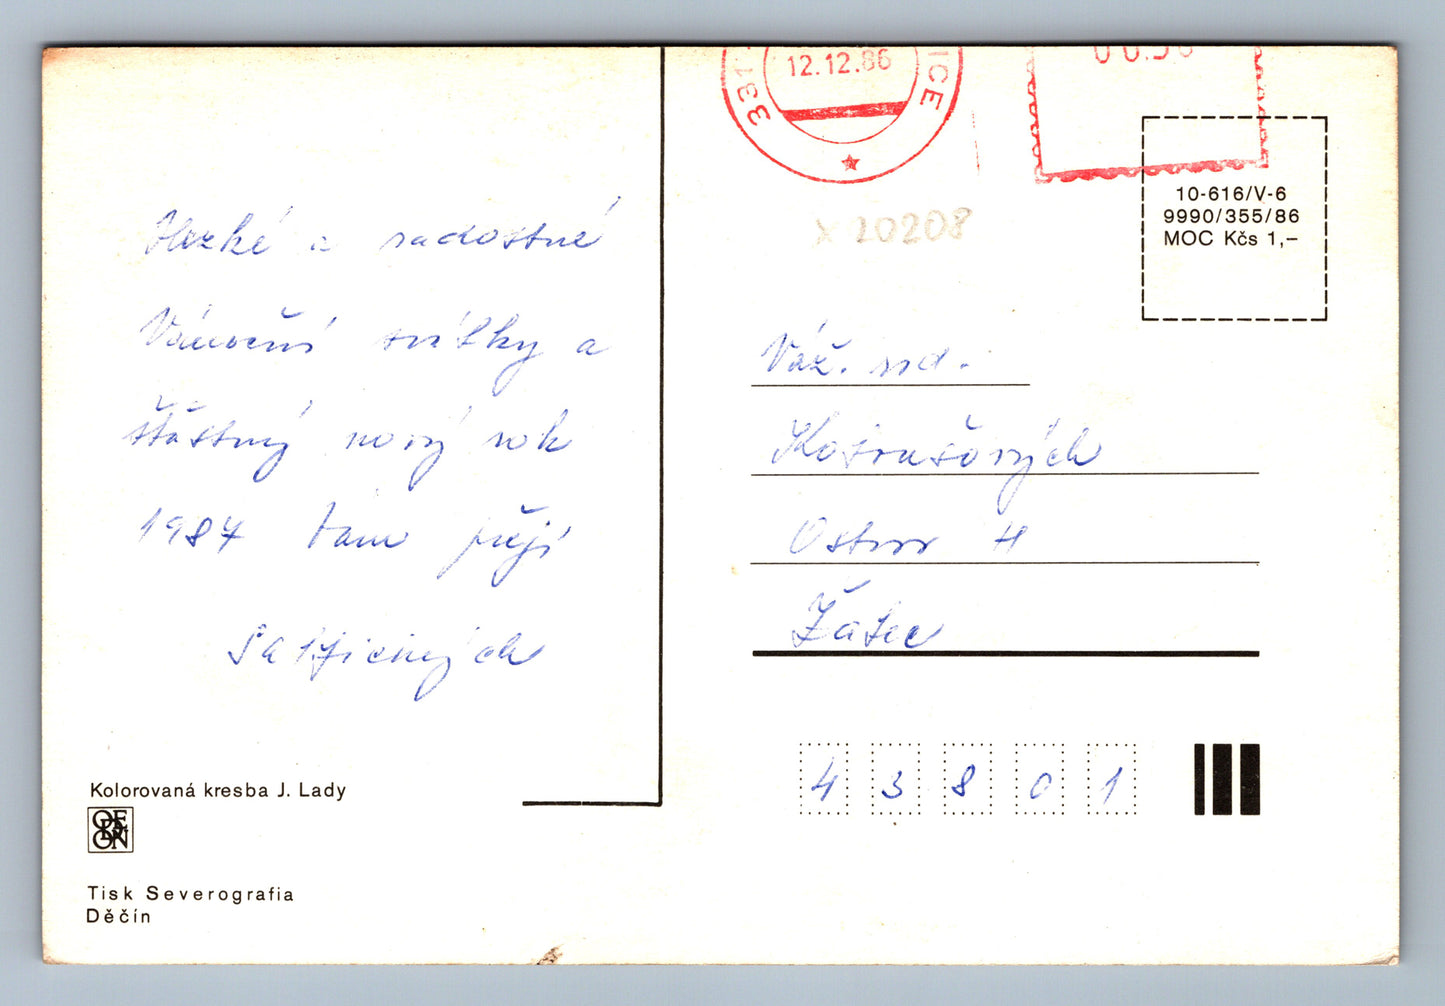 331
12.12.86
ICE
x 20208
10-616/V-6
9990/355/86
MOC Kčs 1,–
Hezké a radostné
Vánoční svátky a
šťastný nový rok
1987 Vám přejí
Váž. rod.
Ostrov 4
Žatec
43801
Kolorovaná kresba J. Lady
ODEON
Tisk Severografia
Děčín